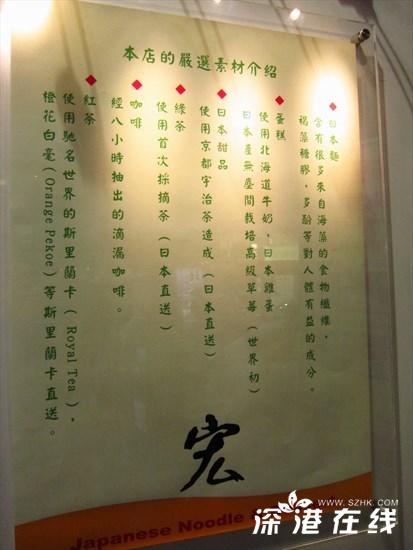 本店的嚴選素材介紹
◆日本麵
含有很多來自海藻的食物纖維，
褐藻糖膠，多酚等對人體有益的成分。
◆蛋糕
使用北海道牛奶，日本雞蛋
日本產無塵間栽培高級草莓（世界初）
◆日本甜品
使用京都宇治茶造成（日本直送）
◆綠茶
使用首次採摘茶（日本直送）
◆咖啡
經八小時抽出的滴漏咖啡。
◆紅茶
使用馳名世界的斯里蘭卡（Royal Tea），
橙花白毫（Orange Pekoe）等斯里蘭卡直送。
宏
Japanese Noodle
WWW.SZHK.COM
深港在线